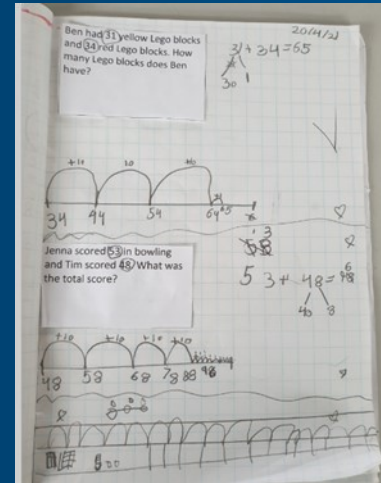 20/4/21
Ben had 31 yellow Lego blocks
and 34 red Lego blocks. How
many Lego blocks does Ben
have?
31 + 34 = 65
30 1
+10 10 +10
34 44 54 64 65
Jenna scored 53 in bowling
and Tim scored 48. What was
the total score?
53 + 48 =
40 8
+10 +10 +10 +10
48 58 68 78 88 98